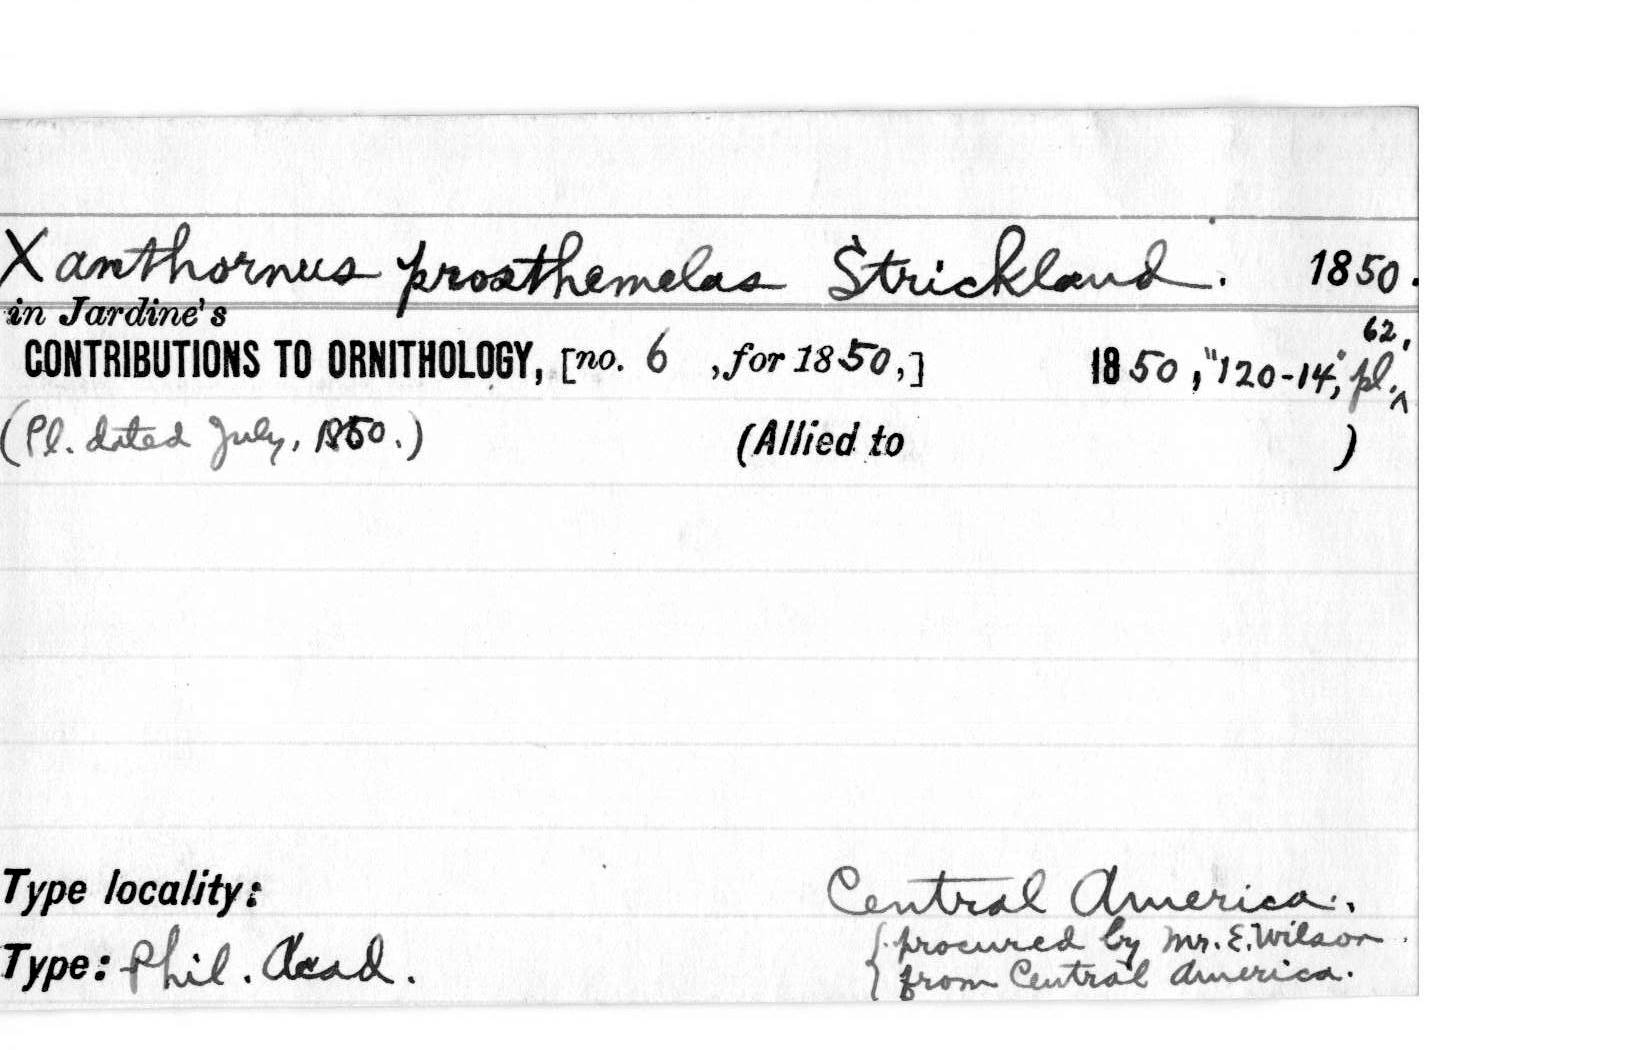 Xanthornus prosthemelas Strickland. 1850.
in Jardine's
CONTRIBUTIONS TO ORNITHOLOGY, [no. 6 ,for 1850,] 1850, "120-14," pl. 62,
(Pl. dated July, 1850.) (Allied to )
Type locality: Central America.
Type: Phil. Acad. {procured by Mr. E. Wilson
from Central America.